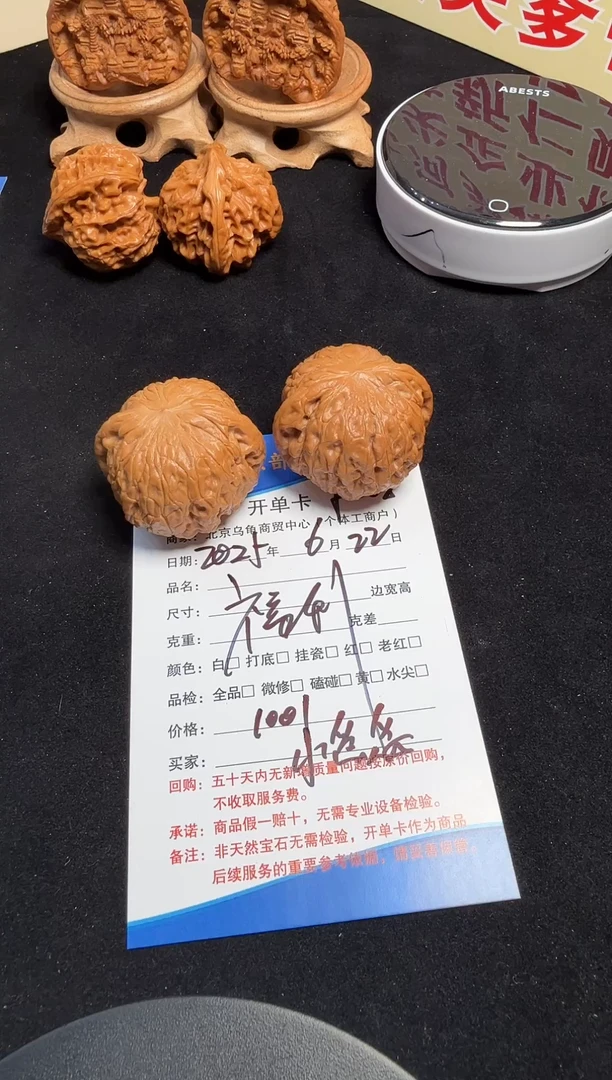 ABESTS
开单卡
北京乌龟商贸中心（个体工商户）
日期：2025年 6月 22日
品名：
尺寸： 边宽高
克重： 克差
颜色：白□ 打底□ 挂瓷□ 红□ 老红□
品检：全品□ 微修□ 磕碰□ 黄□ 水尖□
福利
价格：1001
买家：
回购：五十天内无新增质量问题按原价回购，
不收取服务费。
承诺：商品假一赔十，无需专业设备检验。
备注：非天然宝石无需检验，开单卡作为商品
后续服务的重要参考依据，